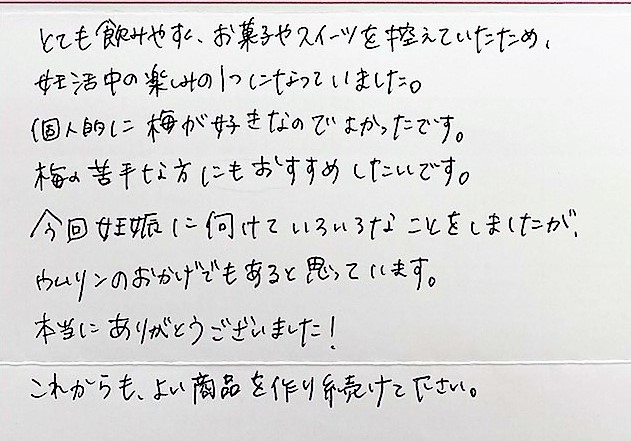 とても飲みやすく、お菓子やスイーツを控えていたため、
妊活中の楽しみの1つになっていました。
個人的に梅が好きなのでよかったです。
梅の苦手な方にもおすすめしたいです。
今回妊娠に向けていろいろなことをしましたが、
ウムリンのおかげでもあると思っています。
本当にありがとうございました!
これからも、よい商品を作り続けて下さい。